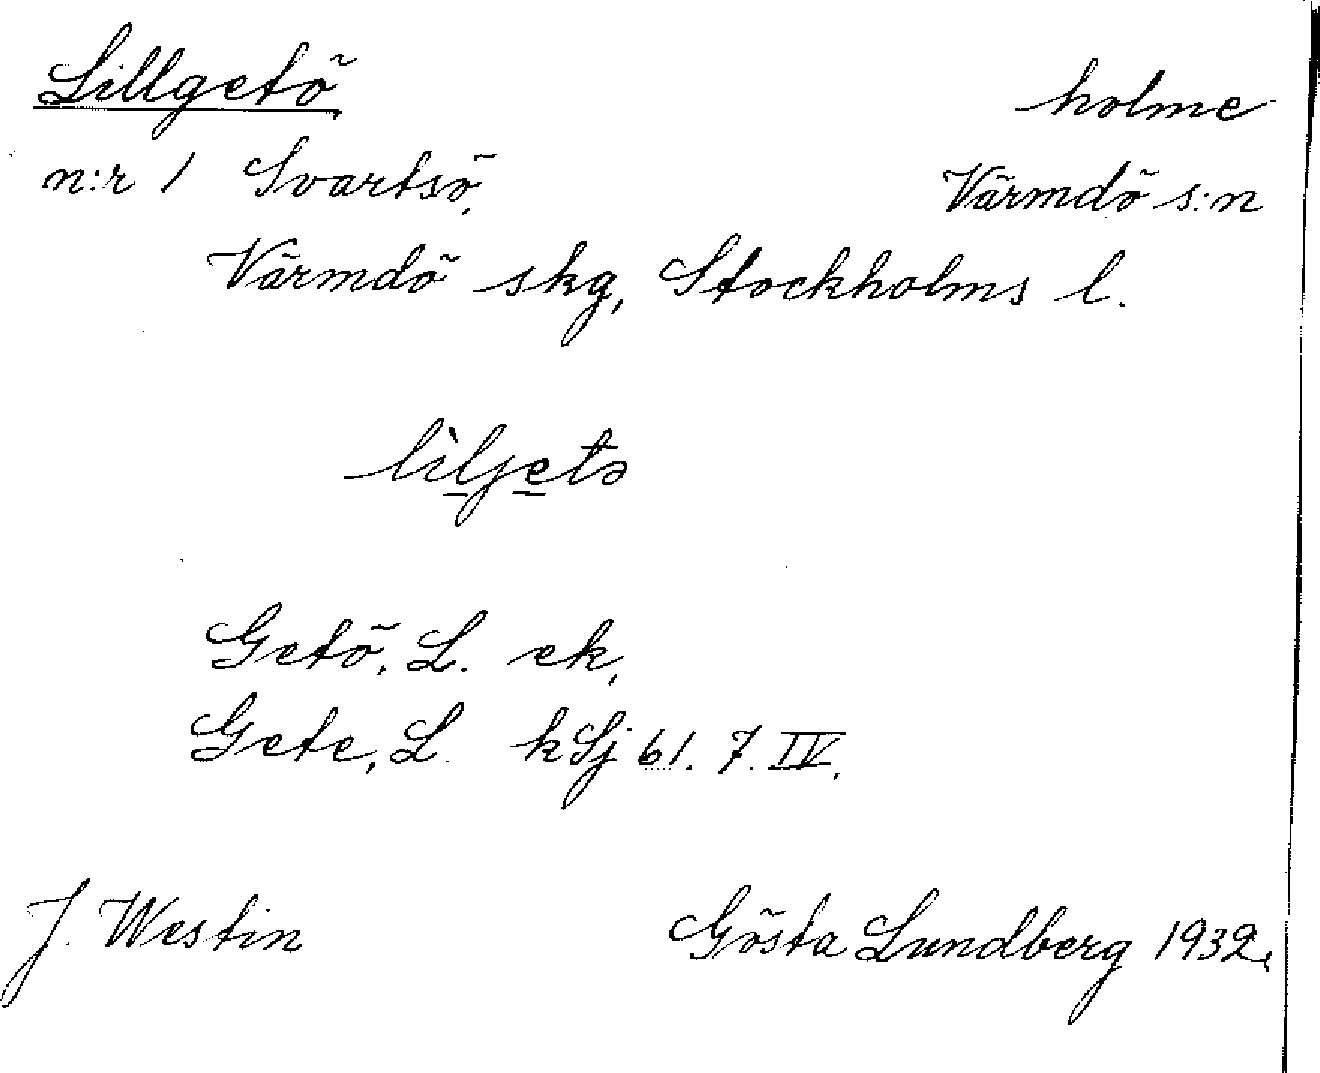 Lillgetö
holme
n:r 1 Svartsö,
Värmdö s:n
Värmdö skg, Stockholms l.
lìljetə
Getö, L. ek,
Gete, L. kSj 61. 7. IV.
J. Westin
Gösta Lundberg 1932.